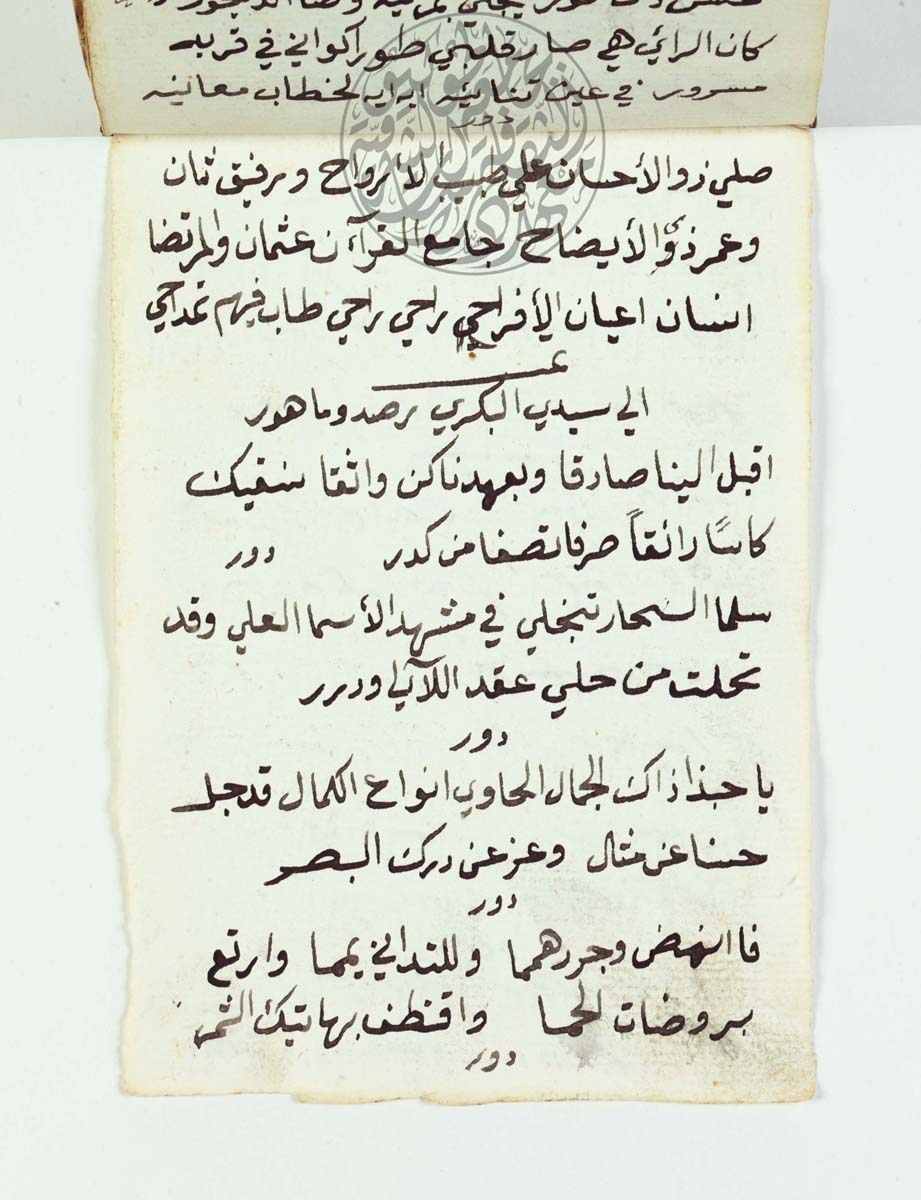 كان الرائي هي صار قلبي طورا كواني في قربه
مسرور في عين تنائيه ايه ايه لخطاب معانيه
دور
صلي ذو الأحسان علي طبيب الأرواح ورفيق ثان
وعمر ذؤ الأيضاح جامع القرآن عثمان والمرتضا
انسان اعيان الأفراحي راحي راحي طاب فيهم تمداحي
الي سيدي البكري رصد وماهور
اقبل الينا صادقا وبعهدنا كن واثقا سنقيك
كاسًا رائقاً صرفا تصفا من كدر دور
سلما السحار تنجلي في مشهد الأسما العلي وقد
تحلت من حلي عقد اللآلي ودرر
دور
يا حبذا ذاك الجمال الحاوي انواع الكمال قد جل
حسنا عن مثال وعز عن درك البصر
دور
فا انهض وجرد همما وللتداني يمما وارتع
بروضات الحما واقتطف بهاتيك الثمر
دور